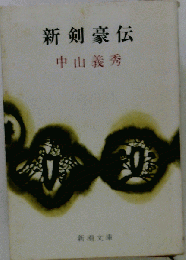 新剣豪伝
中山義秀
新潮文庫